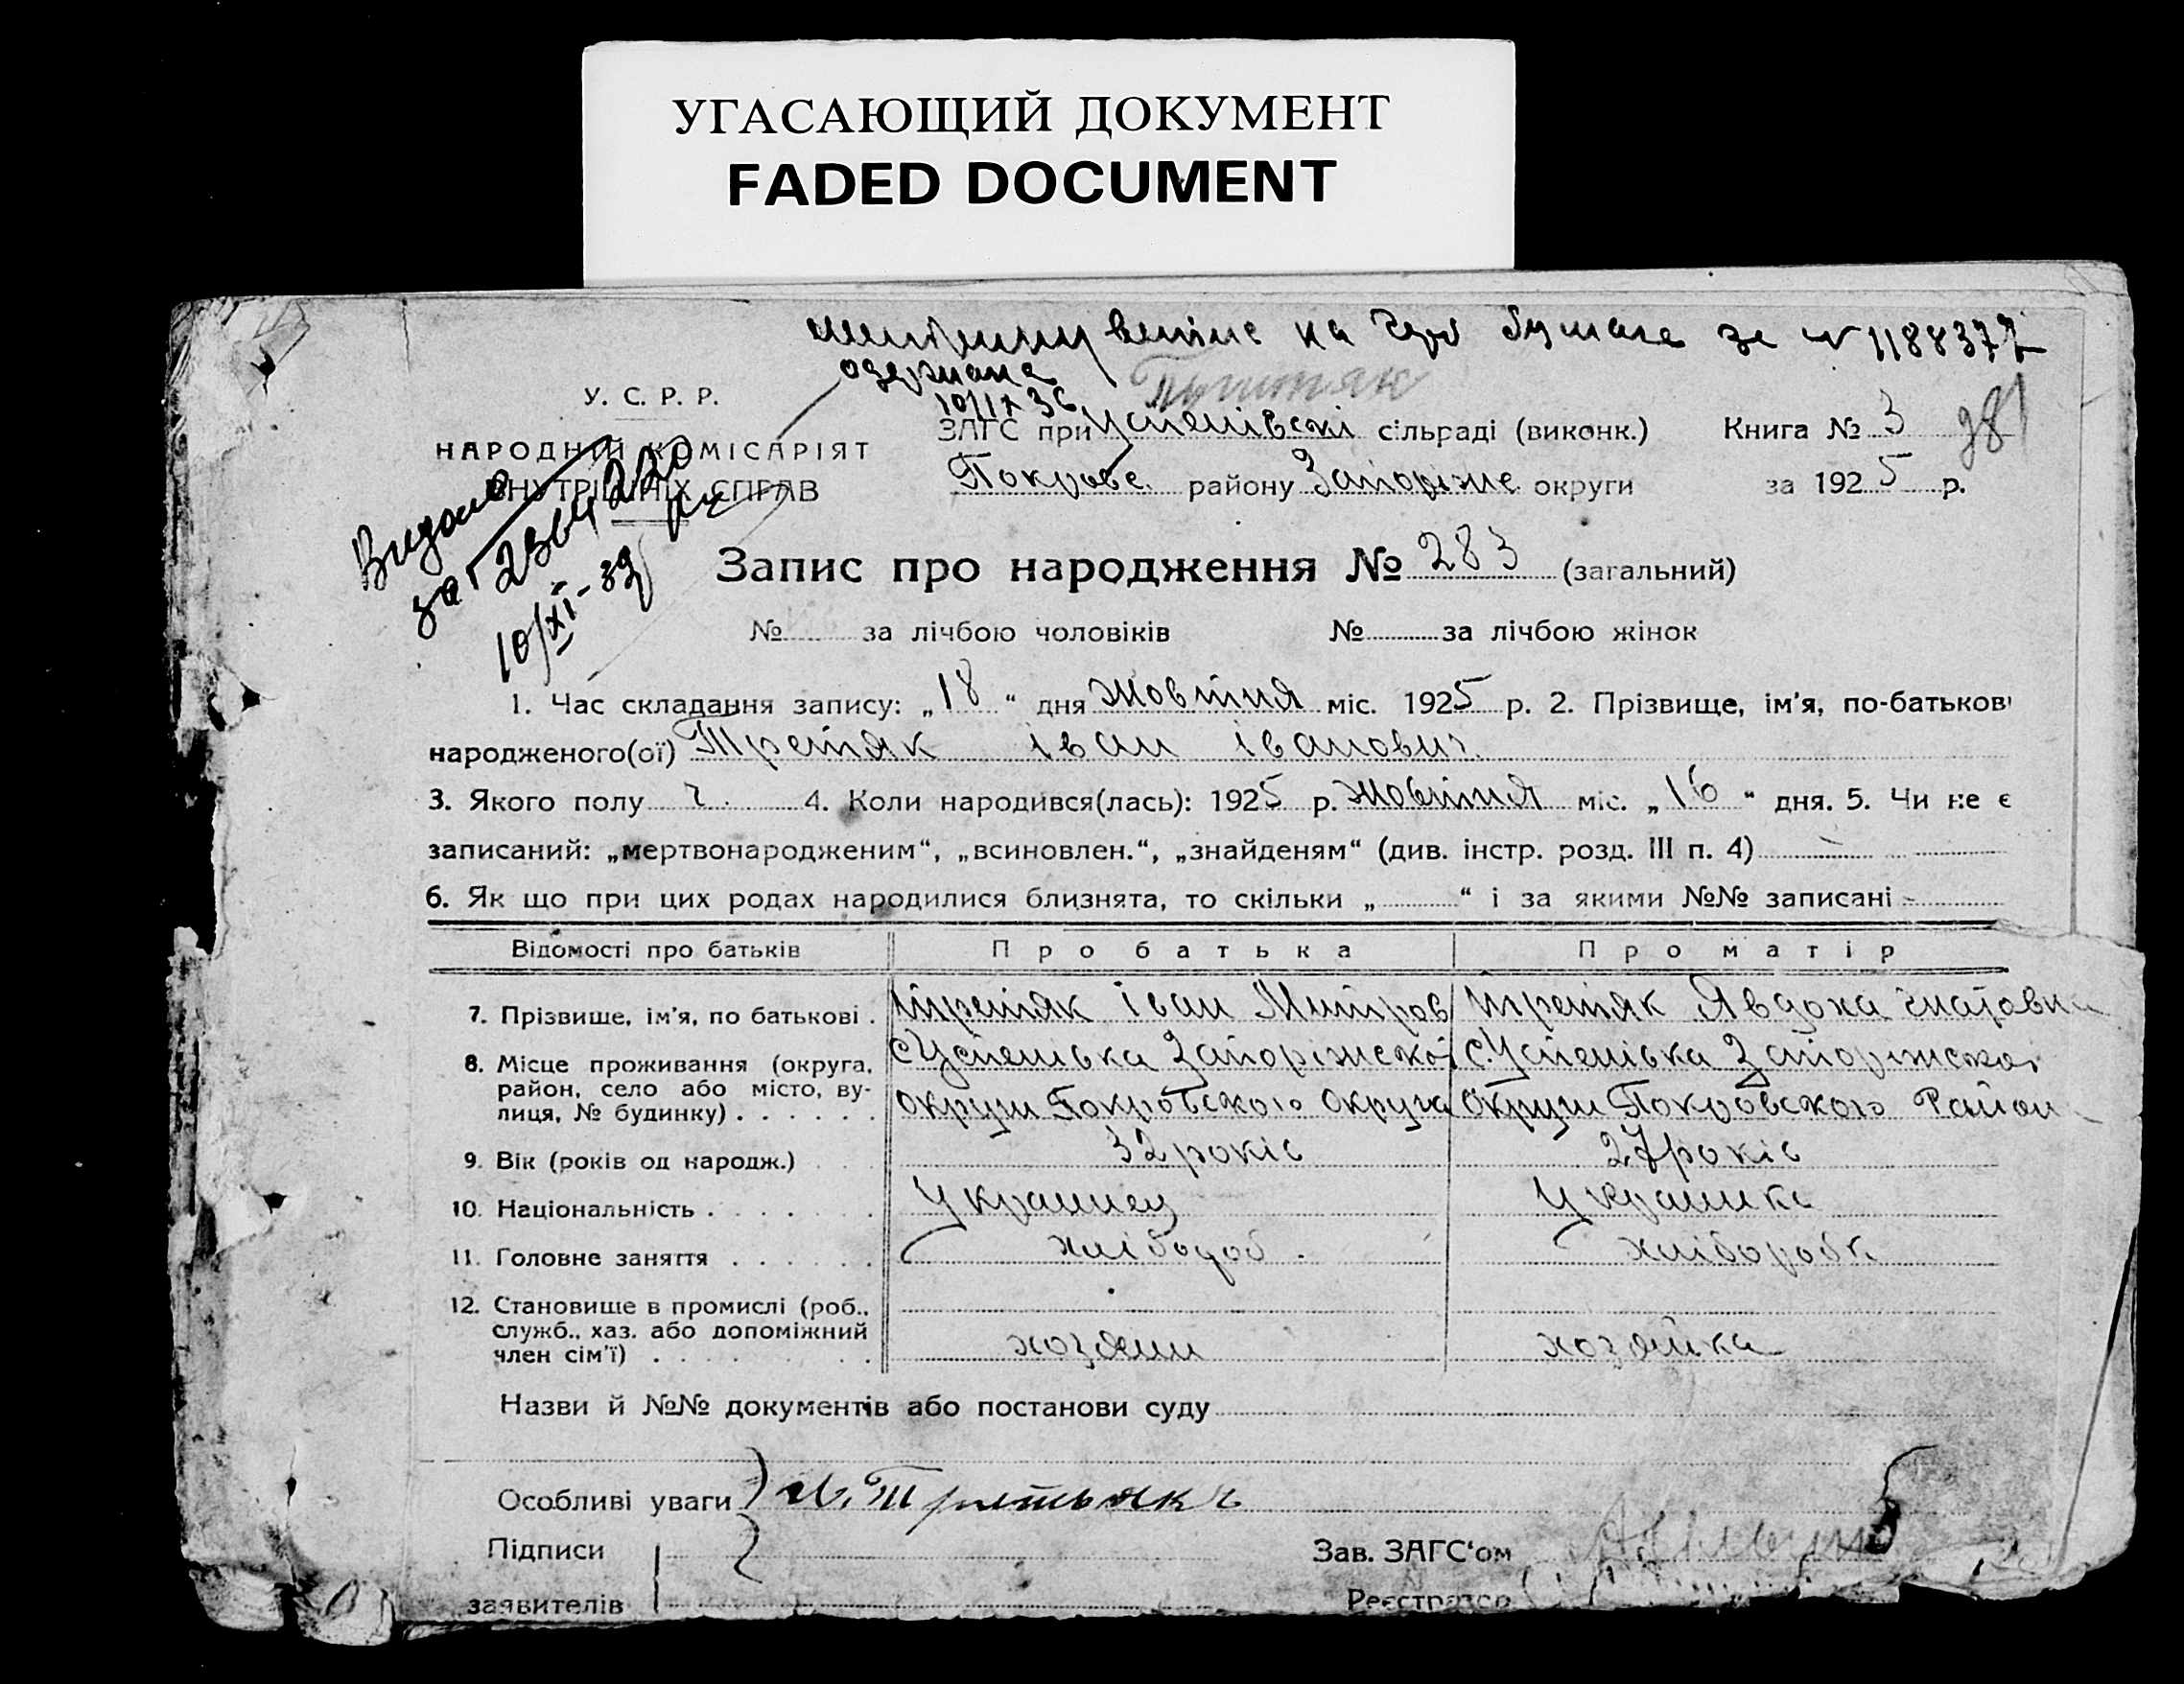 УГАСАЮЩИЙ ДОКУМЕНТ
FADED DOCUMENT
на гербовій за № 1188377
одержана
10/IX 36
У. С. Р. Р.
НАРОДНІЙ КОМІСАРІЯТ
ВНУТРІШНІХ СПРАВ
Видано
10/XI-39
ЗАГС при Успенівскі сільраді (виконк.) Книга № 3
Покровс. району Запоріжс округи за 1925 р.
Запис про народження № 283 (загальний)
№ за лічбою чоловіків № за лічбою жінок
1. Час складання запису: „18“ дня Жовтня міс. 1925 р. 2. Прізвище, ім'я, по-батькові
народженого(ої) Третяк Іван Іванович.
3. Якого полу ч. 4. Коли народився(лась): 1925 р. Жовтня міс. „16“ дня. 5. Чи не є
записаний: „мертвонародженим“, „всиновлен.“, „знайденям“ (див. інстр. розд. III п. 4)
6. Як що при цих родах народилися близнята, то скільки „ “ і за якими №№ записані -
Відомості про батьків Про батька Про матір
7. Прізвище, ім'я, по батькові . Третяк Іван Митров Третяк Явдоха Гнатовна
8. Місце проживання (округа, с Успенівка Запоріжскої с. Успенівка Запоріжскої
район, село або місто, ву-
лиця, № будинку) . . . . . . округи Покровского Округа Округи Покровского Район
9. Вік (років од народж.) 32 років 27 років
10. Національність . . . . . . . Украинец Украинка
11. Головне заняття . . . . . . хлібороб. хлібородка
12. Становище в промислі (роб.,
служб., хаз. або допоміжний
член сім'ї) . . . . . . . хозяин хозяйка
Назви й №№ документів або постанови суду
Особливі уваги И. Третьяк
Підписи Зав. ЗАГС'ом
заявителів Реєстратор